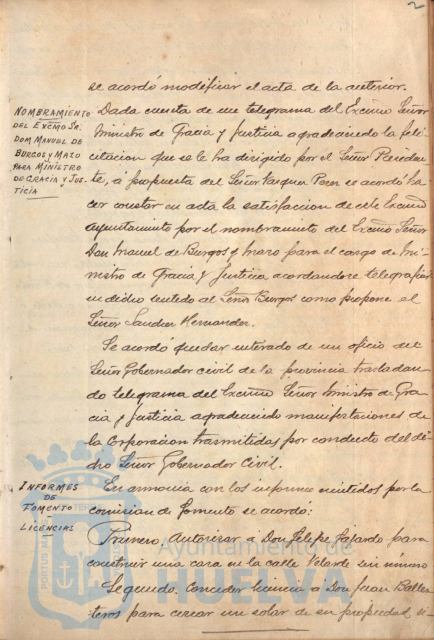 2
se acordó modificar el acta de la anterior.
NOMBRAMIENTO
DEL EXCMO SR.
DOM MANUEL DE
BURGOS Y MAZO
PARA MINISTRO
DE GRACIA Y JUS-
TICIA
Dada cuenta de un telegrama del Excmo Señor
Ministro de Gracia y Justicia agradeciendo la feli-
citacion que se le ha dirigido por el Señor Presiden-
te, a propuesta del Señor Vazquez Perez se acordó ha-
cer constar en acta la satisfaccion de este Excmo
Ayuntamiento por el nombramiento del Excmo Señor
Don Manuel de Burgos y Mazo para el cargo de Mi-
nistro de Gracia y Justicia acordandose telegrafiar
en dicho sentido al Señor Burgos como propone el
Señor Sanchez Hernandez.
Se acordó quedar enterado de un oficio del
Señor Gobernador civil de la provincia trasladan-
do telegrama del Excmo Señor Ministro de Gra-
cia y Justicia agradeciendo manifestaciones de
la Corporacion trasmitidas por conducto del di-
cho Señor Gobernador Civil.
INFORMES
DE
FOMENTO
LICENCIAS
En armonia con los informes emitidos por la
comision de fomento se acordo:
Primero. Autorizar a Don Felipe Fajardo para
construir una casa en la calle Velarde sin número
Segundo. Conceder licencia a Don Juan Balles-
teros para cercar un solar de su propiedad si-
PORTUS MARIS
Ayuntamiento de
HUELVA